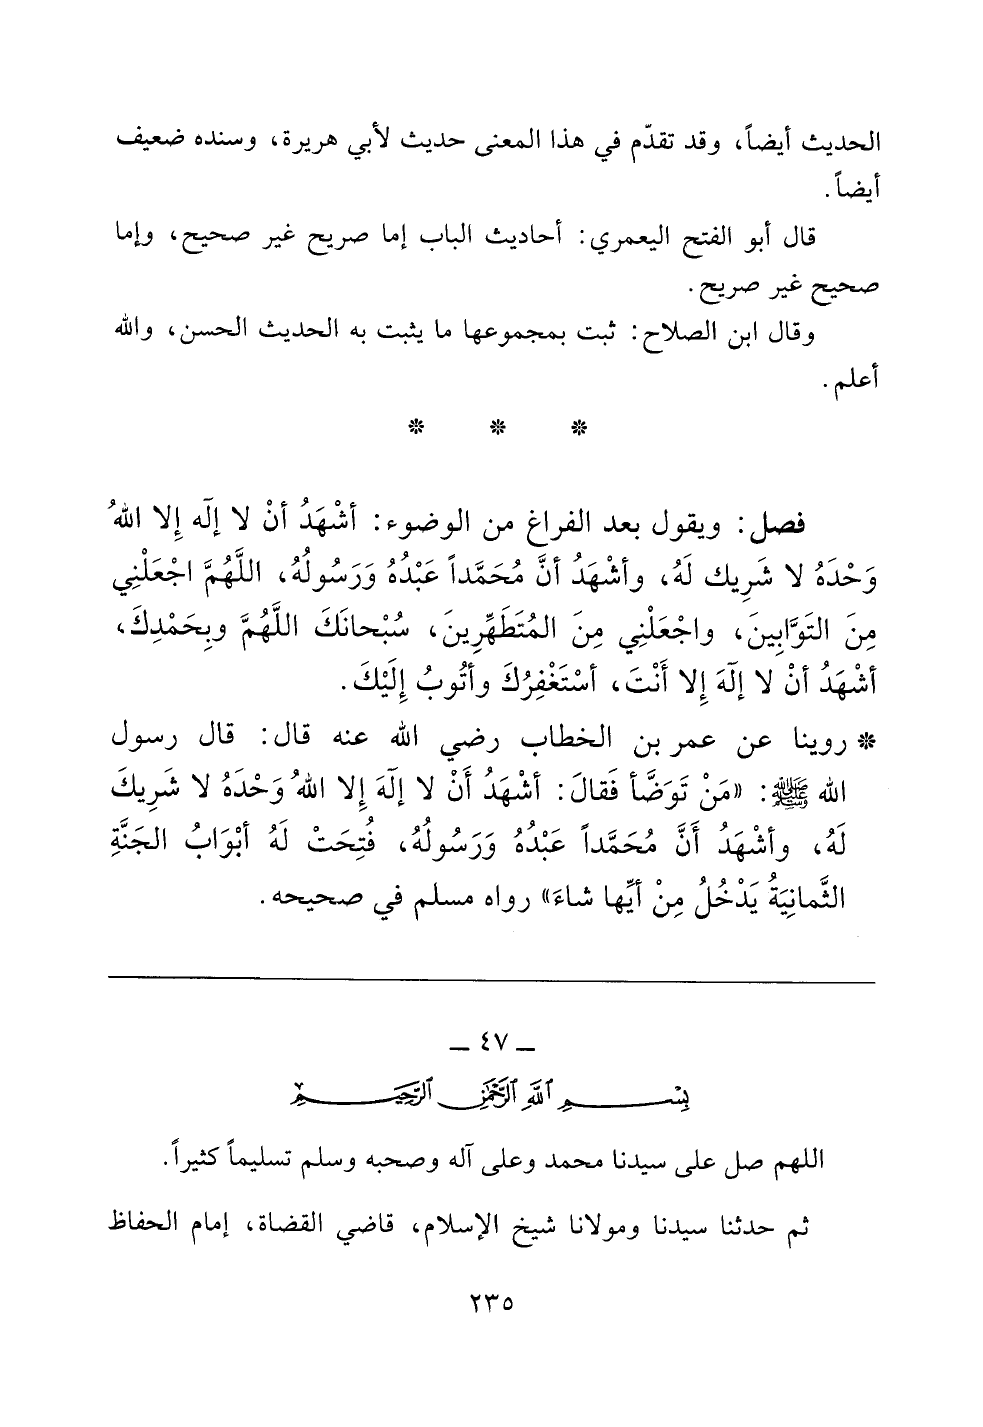 الحديث أيضاً، وقد تقدّم في هذا المعنى حديث لأبي هريرة، وسنده ضعيف
أيضاً.
قال أبو الفتح اليعمري: أحاديث الباب إما صريح غير صحيح، وإما
صحيح غير صريح.
وقال ابن الصلاح: ثبت بمجموعها ما يثبت به الحديث الحسن، والله
أعلم.
* * *
فصل: ويقول بعد الفراغ من الوضوء: أشْهَدُ أنْ لا إله إلا اللهُ
وَحْدَهُ لا شَرِيك لَهُ، وأشْهَدُ أنَّ مُحَمَّداً عَبْدُهُ وَرَسُولُهُ، اللَّهُمَّ اجْعَلْنِي
مِنَ التَوَّابِينَ، واجْعَلْنِي مِنَ المُتَطَهِّرِينَ، سُبْحانَكَ اللَّهُمَّ وبِحَمْدِكَ،
أشْهَدُ أنْ لا إلَهَ إِلا أَنْتَ، أسْتَغْفِرُكَ وأتُوبُ إِلَيْكَ.
* روينا عن عمر بن الخطاب رضي الله عنه قال: قال رسول
الله ﷺ: «مَنْ تَوَضَّأ فَقالَ: أشْهَدُ أَنْ لا إلَهَ إِلا اللهُ وَحْدَهُ لا شَرِيكَ
لَهُ، وأشْهَدُ أَنَّ مُحَمَّداً عَبْدُهُ وَرَسُولُهُ، فُتِحَتْ لَهُ أبْوَابُ الجَنَّةِ
الثَّمانِيَةُ يَدْخُلُ مِنْ أيِّها شاءَ» رواه مسلم في صحيحه.
ـ ٤٧ ـ
بِسْمِ اللَّهِ الرَّحْمَٰنِ الرَّحِيمِ
اللهم صل على سيدنا محمد وعلى آله وصحبه وسلم تسليماً كثيراً.
ثم حدثنا سيدنا ومولانا شيخ الإسلام، قاضي القضاة، إمام الحفاظ
٢٣٥